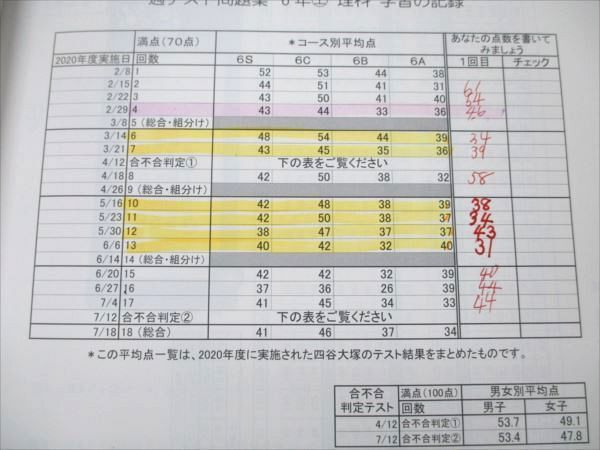 週テスト問題集 6年上 理科 学習の記録
満点（70点） ＊コース別平均点 あなたの点数を書いてみましょう
2020年度実施日 回数 6S 6C 6B 6A 1回目 チェック
2/8 1 52 53 44 38
2/15 2 44 51 41 31 61
2/22 3 43 50 41 40 54
2/29 4 43 44 33 36 46
3/8 5（総合・組分け）
3/14 6 48 54 44 39 34
3/21 7 43 45 35 36 39
4/12 合不合判定① 下の表をご覧ください
4/18 8 42 50 38 32 58
4/26 9（総合・組分け）
5/16 10 42 48 38 39 38
5/23 11 42 50 38 37 34
5/30 12 38 47 37 37 43
6/6 13 40 42 32 40 31
6/14 14（総合・組分け）
6/20 15 42 42 32 39 40
6/27 16 37 36 26 39 44
7/4 17 41 45 34 33 44
7/12 合不合判定② 下の表をご覧ください
7/18 18（総合） 41 46 37 34
＊この平均点一覧は、2020年度に実施された四谷大塚のテスト結果をまとめたものです。
合不合判定テスト 満点（100点） 男女別平均点
回数 男子 女子
4/12 合不合判定① 53.7 49.1
7/12 合不合判定② 53.4 47.8